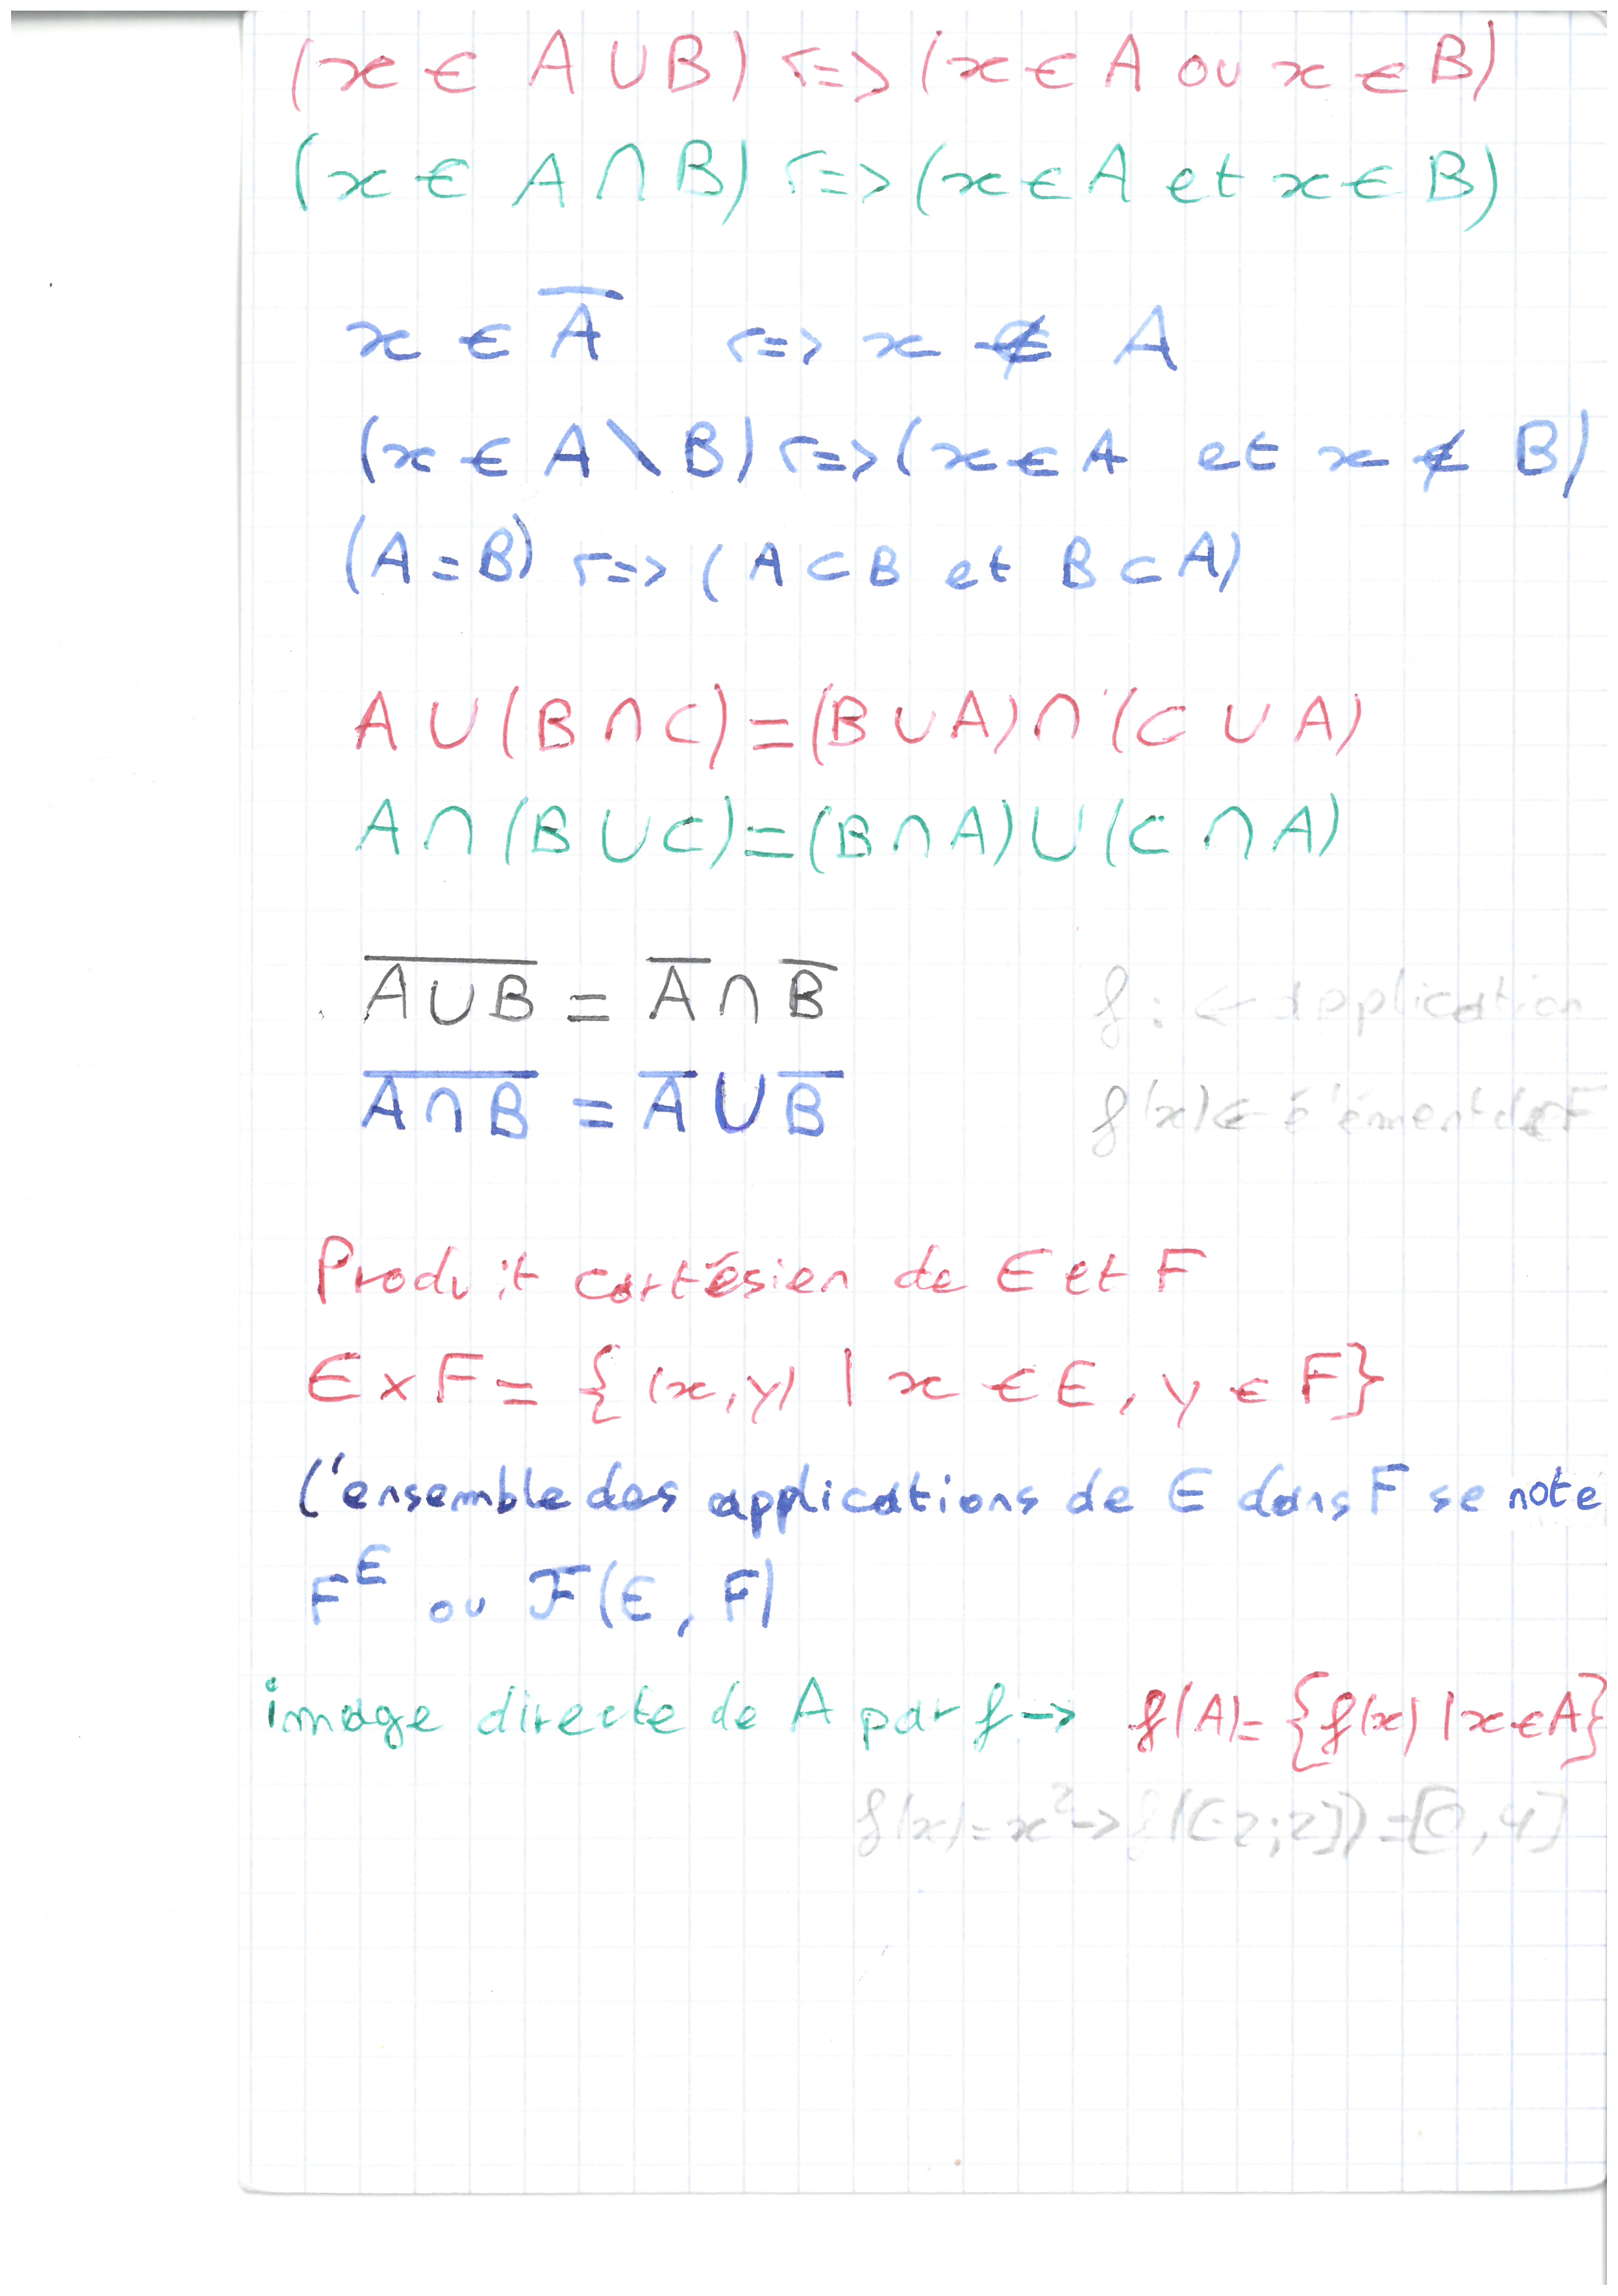 (x ∈ A ∪ B) <=> (x ∈ A ou x ∈ B)
(x ∈ A ∩ B) <=> (x ∈ A et x ∈ B)
x ∈ A̅ <=> x ∉ A
(x ∈ A \ B) <=> (x ∈ A et x ∉ B)
(A = B) <=> (A ⊂ B et B ⊂ A)
A ∪ (B ∩ C) = (B ∪ A) ∩ (C ∪ A)
A ∩ (B ∪ C) = (B ∩ A) ∪ (C ∩ A)
A̅ ̅∪̅ ̅B̅ = A̅ ∩ B̅
f : ← application
A̅ ̅∩̅ ̅B̅ = A̅ ∪ B̅
f(x) ← élément de F
Produit cartésien de E et F
E x F = {(x,y) | x ∈ E, y ∈ F}
l'ensemble des applications de E dans F se note
F^E ou F(E, F)
image directe de A par f -> f(A) = {f(x) | x ∈ A}
f(x) = x² -> f([-2;2]) = [0,4]